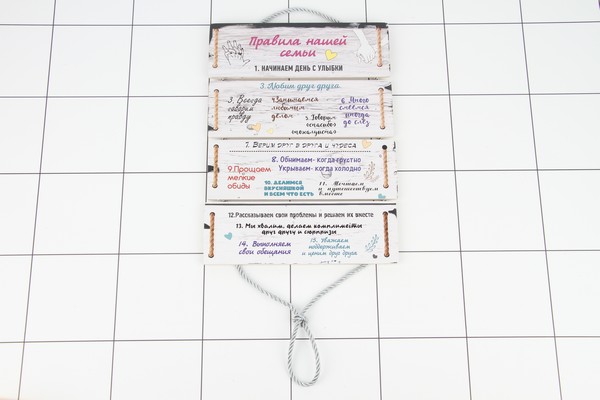 Правила нашей
семьи
1. НАЧИНАЕМ ДЕНЬ С УЛЫБКИ
Любим друг друга
3. Всегда
говорим
правду
4Занимаемся
любимым
делом
5.Говорим
спасибо
пожалуйста
6 Много
смеемся
иногда
до слёз
7. Верим друг в друга и чудеса
8. Обнимаем- когда грустно
Укрываем- когда холодно
9.Прощаем
мелкие
обиды
10. ДЕЛИМСЯ
ВКУСНЯШКОЙ
И ВСЕМ ЧТО ЕСТЬ
11. Мечтаем
и путешествуем
вместе
12.Рассказываем свои проблемы и решаем их вместе
13. Мы хвалим, делаем комплименты
друг другу и сюрпризы
14. Выполняем
свои обещания
15. Уважаем
поддерживаем
и ценим друг друга